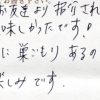 お友達より紹介され
味しかったです。
に 巣ごもり あるの
楽しみ です。